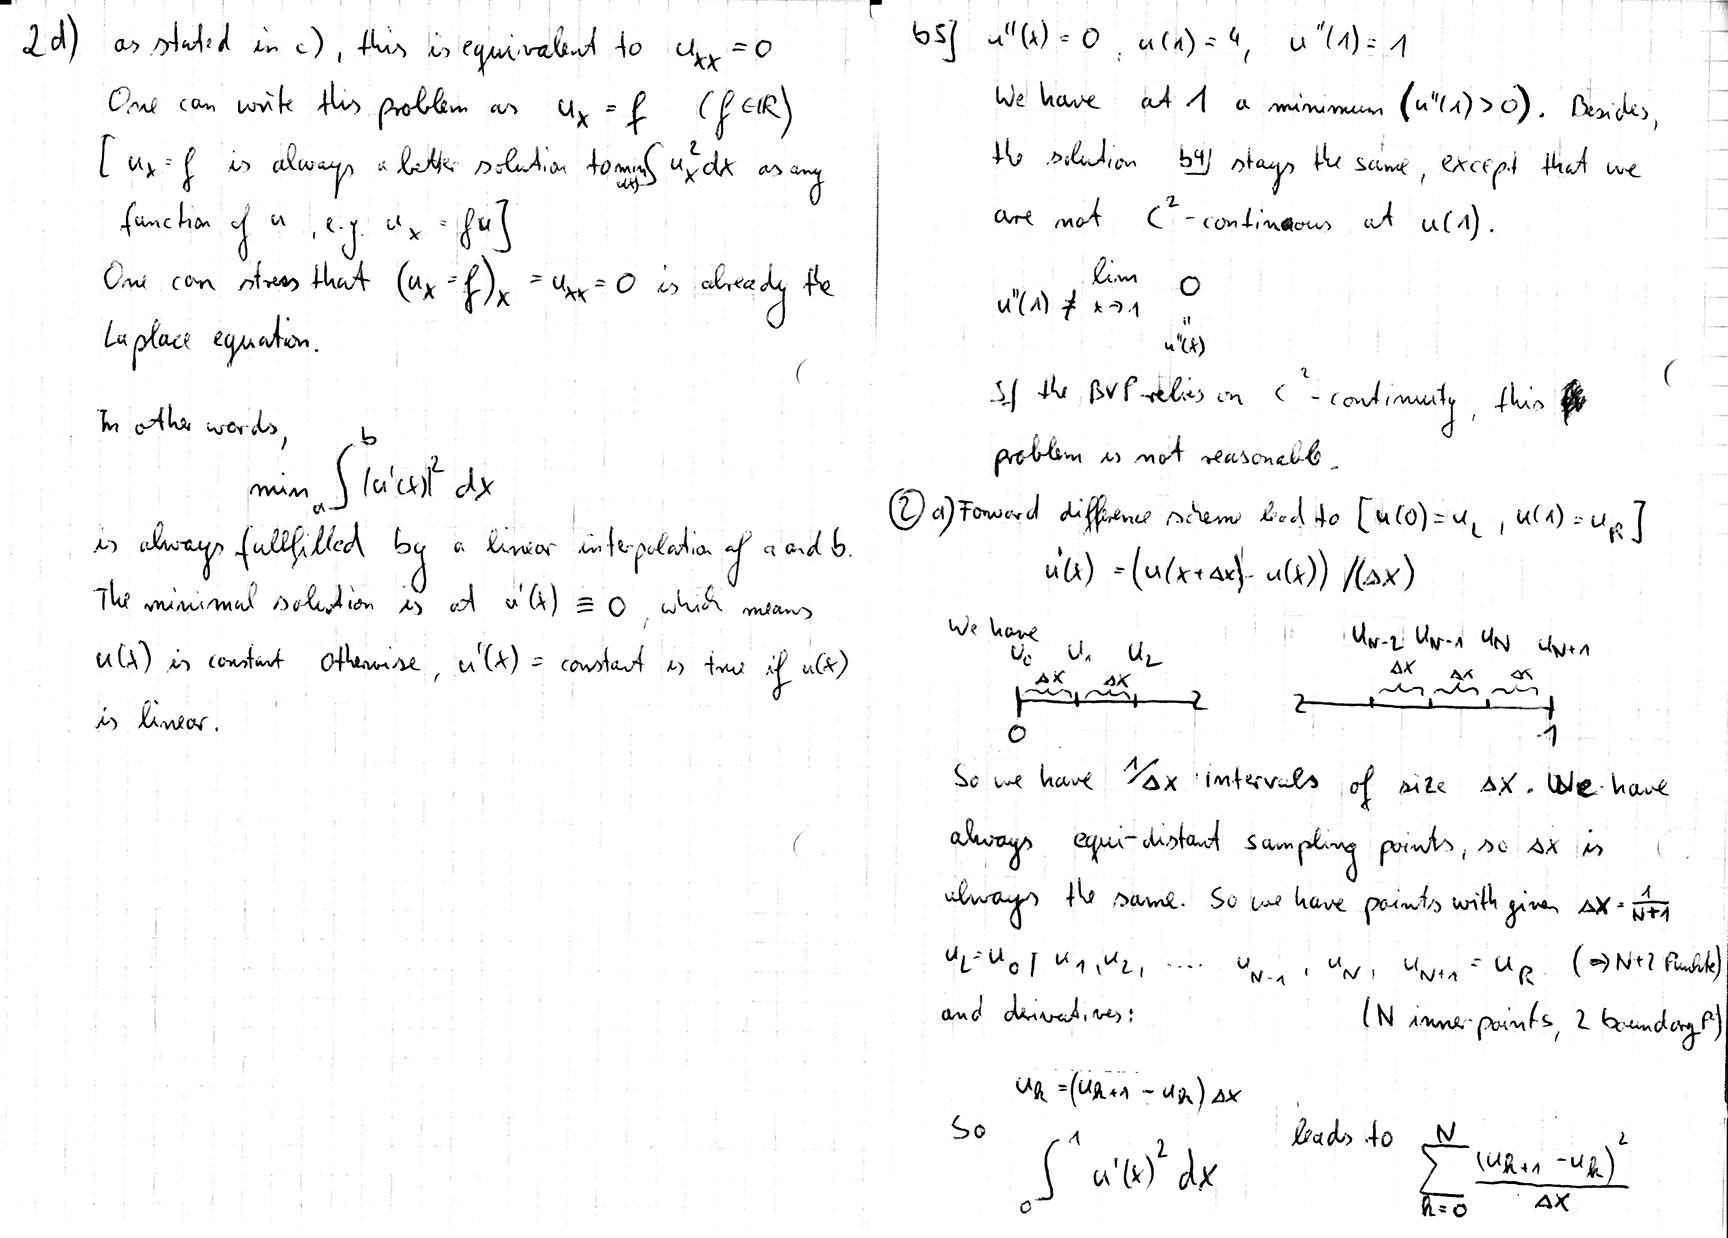 2d) as stated in c), this is equivalent to u_xx = 0
One can write this problem as u_x = f (f ∈ ℝ)
[ u_x = f is always a better solution to min_{u(x)} ∫ u_x² dx as any
function of u, e.g. u_x = fu ]
One can stress that (u_x = f)_x = u_xx = 0 is already the
Laplace equation.
In other words,
min ∫_a^b |u'(x)|² dx
is always fullfilled by a linear interpolation of a and b.
The minimal solution is at u'(x) ≡ 0, which means
u(x) is constant otherwise, u'(x) = constant is true if u(x)
is linear.
b5] u''(x) = 0, u(1) = 4, u''(1) = 1
We have at 1 a minimum (u''(1) > 0). Besides,
the solution b4] stays the same, except that we
are not C²-continuous at u(1).
u''(1) ≠ lim_{x→1} 0
=
u''(x)
If the BVP relies on C²-continuity, this
problem is not reasonable.
② a) Forward difference scheme lead to [u(0) = u_L, u(1) = u_R]
u'(x) = (u(x+Δx) - u(x)) /(Δx)
We have
u_0 u_1 u_2 u_{N-2} u_{N-1} u_N u_{N+1}
Δx Δx Δx Δx Δx
0 1
So we have 1/Δx intervals of size Δx. We have
always equi-distant sampling points, so Δx is
always the same. So we have points with given Δx = 1/(N+1)
u_L = u_0, u_1, u_2, .... u_{N-1}, u_N, u_{N+1} = u_R (⇒ N+2 Punkte)
and derivatives: (N inner points, 2 boundary P.)
u_k = (u_{k+1} - u_k) Δx
So ∫_0^1 u'(x)² dx leads to ∑_{k=0}^N (u_{k+1} - u_k)² / Δx